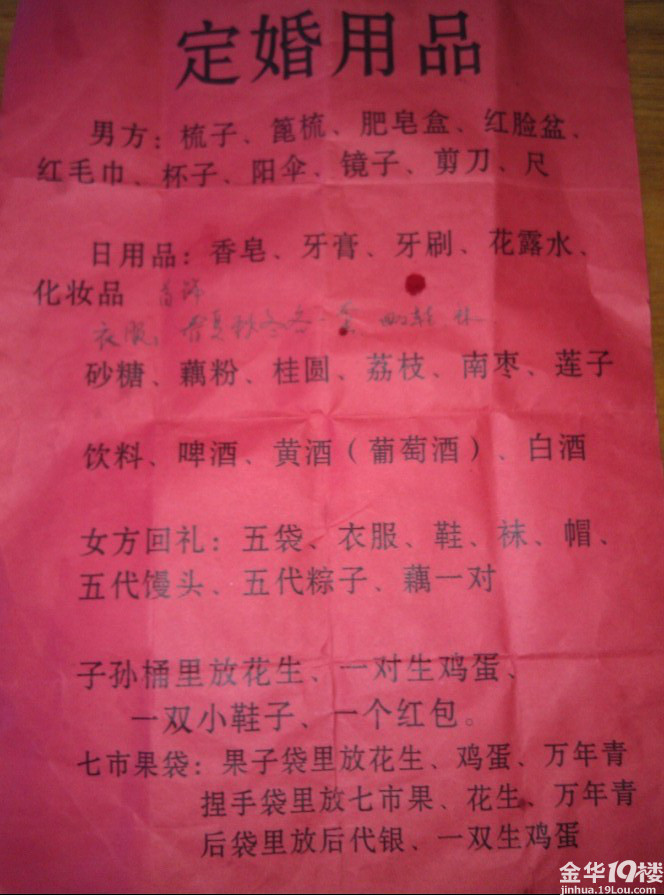 定婚用品
男方：梳子、篦梳、肥皂盒、红脸盆、
红毛巾、杯子、阳伞、镜子、剪刀、尺
日用品：香皂、牙膏、牙刷、花露水、
化妆品 首饰
衣服：春夏秋冬各一套
砂糖、藕粉、桂圆、荔枝、南枣、莲子
饮料、啤酒、黄酒（葡萄酒）、白酒
女方回礼：五袋、衣服、鞋、袜、帽、
五代馒头、五代粽子、藕一对
子孙桶里放花生、一对生鸡蛋、
一双小鞋子、一个红包。
七市果袋：果子袋里放花生、鸡蛋、万年青
捏手袋里放七市果、花生、万年青
后袋里放后代银、一双生鸡蛋
金华19楼
jinhua.19Lou.com